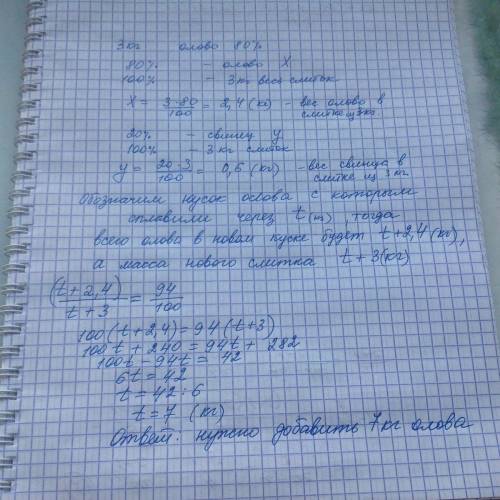 3 кг олово 80%
80% - олово X
100% - 3 кг весь слиток
X = 3·80/100 = 2,4 (кг) - вес олово в слитке из 3 кг.
20% - свинец y
100% - 3 кг слиток
y = 20·3/100 = 0,6 (кг) - вес свинца в слитке из 3 кг.
Обозначим кусок олова с которым
сплавили через t (кг), тогда
всего олова в новом куске будет t+2,4 (кг),
а масса нового слитка t+3 (кг)
(t+2,4)/t+3 = 94/100
100(t+2,4)=94(t+3)
100t+240=94t+282
100t-94t=42
6t=42
t=42:6
t=7 (кг)
Ответ: нужно добавить 7 кг олова